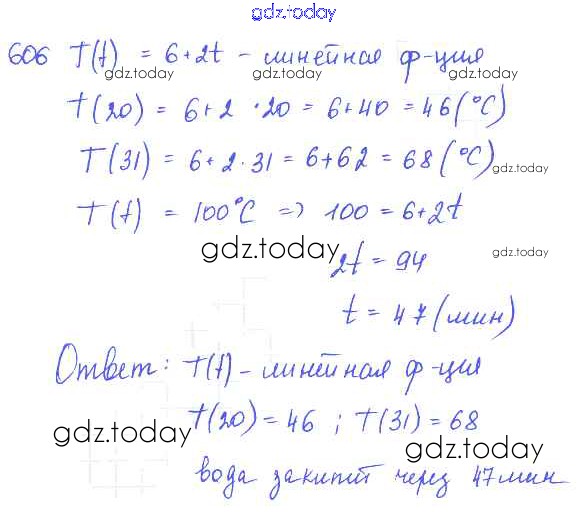 gdz.today
606 T(t) = 6+2t - линейная ф-ция
gdz.today gdz.today gdz.today
T(20) = 6+2 · 20 = 6+40 = 46 (°C)
T(31) = 6+2·31 = 6+62 = 68 (°C)
gdz.today
T(t) = 100°C => 100 = 6+2t
gdz.today gdz.today
2t = 94
t = 47 (мин)
Ответ: T(t) - линейная ф-ция
T(20) = 46 ; T(31) = 68
gdz.today gdz.today
вода закипит через 47 мин